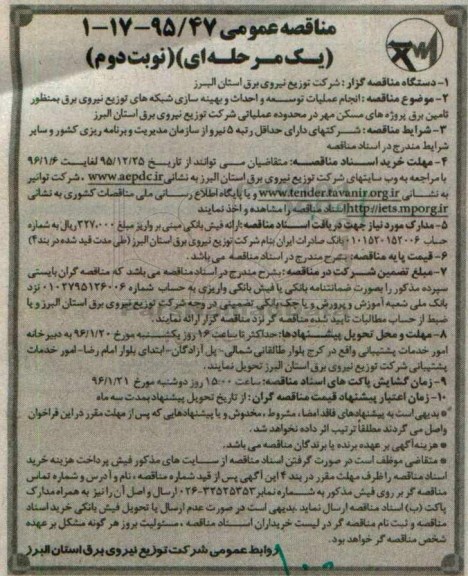 مناقصه عمومی ۹۵/۴۷-۱۷-۱
(یک مرحله ای) (نوبت دوم)
۱- دستگاه مناقصه گزار: شرکت توزیع نیروی برق استان البرز
۲- موضوع مناقصه: انجام عملیات توسعه و احداث و بهینه سازی شبکه های توزیع نیروی برق بمنظور
تامین برق پروژه های مسکن مهر در محدوده عملیاتی شرکت توزیع نیروی برق استان البرز
۳- شرایط مناقصه: شرکتهای دارای حداقل رتبه ۵ نیرو از سازمان مدیریت و برنامه ریزی کشور و سایر
شرایط مندرج در اسناد مناقصه
۴- مهلت خرید اسناد مناقصه: متقاضیان می توانند از تاریخ ۹۵/۱۲/۲۵ لغایت ۹۶/۱/۶
با مراجعه به وب سایتهای شرکت توزیع نیروی برق استان البرز به نشانی www.aepdc.ir، شرکت توانیر
به نشانی www.tender.tavanir.org.ir و یا پایگاه اطلاع رسانی ملی مناقصات کشوری به نشانی
http://iets.mporg.ir اسناد مناقصه را مشاهده و اخذ نمایند
۵- مدارک مورد نیاز جهت دریافت اسناد مناقصه: ارائه فیش بانکی مبنی بر واریز مبلغ ۳۲۷،۰۰۰ ریال به شماره
حساب ۰۱۰۱۵۲۰۱۵۲۰۰۶ بانک صادرات ایران بنام شرکت توزیع نیروی برق استان البرز (طی مدت قید شده در بند ۴)
۶- قیمت پایه مناقصه: بشرح مندرج در اسناد مناقصه می باشد.
۷- مبلغ تضمین شرکت در مناقصه: بشرح مندرج در اسناد مناقصه می باشد که مناقصه گران بایستی
سپرده مذکور را بصورت ضمانتنامه بانکی یا فیش بانکی واریزی به حساب شماره ۰۱۰۲۷۹۵۱۲۶۰۰۶ نزد
بانک ملی شعبه آموزش و پرورش و یا چک بانکی تضمینی در وجه شرکت توزیع نیروی برق استان البرز و یا
ضبط از حساب مطالبات تایید شده مناقصه گر نزد مناقصه گزار ارائه نمایند.
۸- مهلت و محل تحویل پیشنهادها: حداکثر تا ساعت ۱۶ روز یکشنبه مورخ ۹۶/۱/۲۰ به دبیرخانه
امور خدمات پشتیبانی واقع در کرج بلوار طالقانی شمالی - پل آزادگان - ابتدای بلوار امام رضا - امور خدمات
پشتیبانی شرکت توزیع نیروی برق استان البرز تحویل نمایند.
۹- زمان گشایش پاکت های اسناد مناقصه: ساعت ۱۵:۰۰ روز دوشنبه مورخ ۹۶/۱/۲۱
۱۰- زمان اعتبار پیشنهاد قیمت مناقصه گران: از تاریخ تحویل پیشنهاد بمدت سه ماه
* بدیهی است به پیشنهادهای فاقد امضاء، مشروط، مخدوش و یا پیشنهادهایی که پس از مهلت مقرر در این فراخوان
واصل می گردند مطلقاً ترتیب اثر داده نخواهد شد.
* هزینه آگهی بر عهده برنده یا برندگان مناقصه می باشد.
* متقاضی موظف است در صورت گرفتن اسناد مناقصه از سایت های مذکور فیش پرداخت هزینه خرید
اسناد مناقصه را ظرف مهلت مقرر در بند ۴ این آگهی پس از قید شماره مناقصه، نام و آدرس و شماره تماس
مناقصه گر بر روی فیش مذکور به شماره نمابر ۳۲۵۲۵۳۵۳-۰۲۶ ارسال و اصل آن را نیز به همراه مدارک
پاکت (ب) اسناد مناقصه ارسال نماید. بدیهی است در صورت عدم ارسال یا تحویل فیش بانکی خرید اسناد
مناقصه و ثبت نام مناقصه گر در لیست خریداران اسناد مناقصه، مسئولیت بروز هر گونه مشکل بر عهده
شخص مناقصه گر خواهد بود.
روابط عمومی شرکت توزیع نیروی برق استان البرز